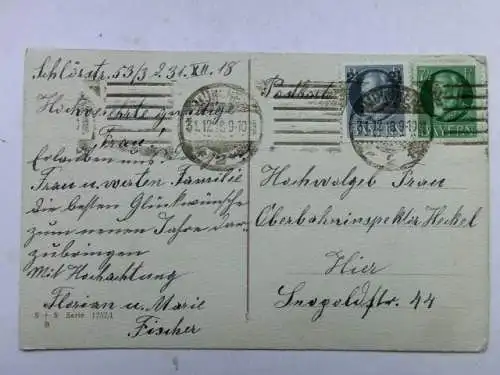 Schlörstr. 53/3 2 31. XII. 18
Hochverehrte gnädige
Frau!
Erlauben uns
Frau u. werten Familie
die besten Glückwünsche
zum neuen Jahre dar-
zubringen
Mit Hochachtung
Florian u. Marie
Fischer
S + S Serie 1757/1
B
Postkarte
31.12.18.9-10
31.12.18.9-10
BAYERN
Hochwolgeb Frau
Oberbahninspektor Heckel
Hier
Leopoldstr. 44